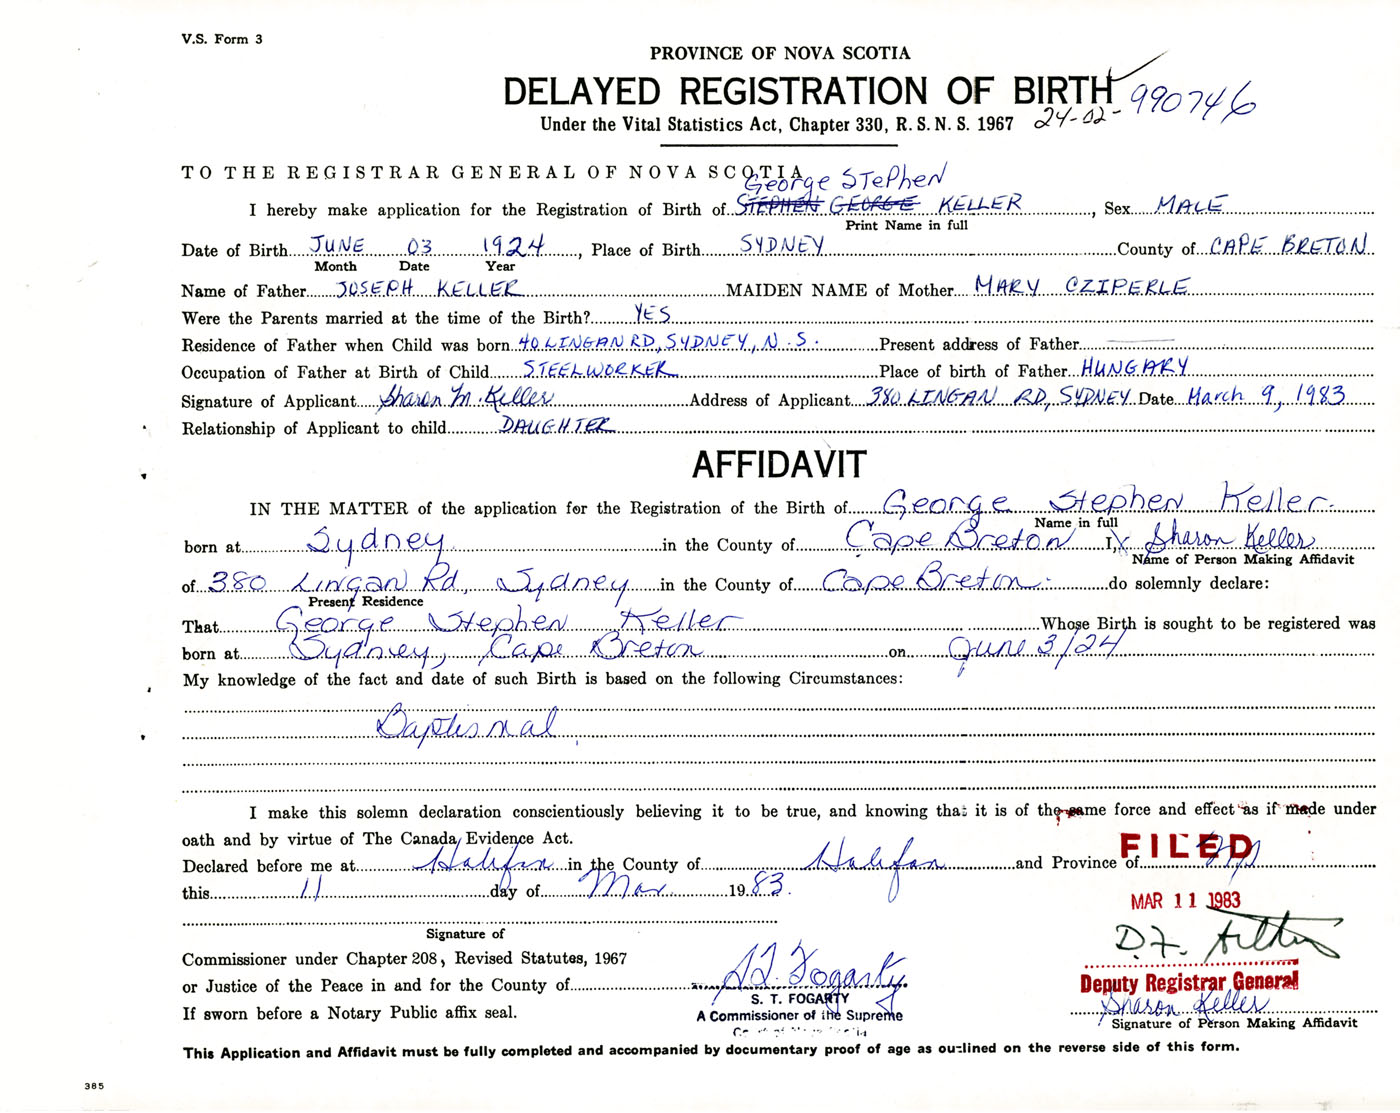 V.S. Form 3
PROVINCE OF NOVA SCOTIA
DELAYED REGISTRATION OF BIRTH
990746
Under the Vital Statistics Act, Chapter 330, R.S.N.S. 1967 24-02-
TO THE REGISTRAR GENERAL OF NOVA SCOTIA
George Stephen
I hereby make application for the Registration of Birth of STEPHEN GEORGE KELLER, Sex MALE
Print Name in full
Date of Birth JUNE 03 1924, Place of Birth SYDNEY County of CAPE BRETON
Month Date Year
Name of Father JOSEPH KELLER MAIDEN NAME of Mother MARY CZIPERLE
Were the Parents married at the time of the Birth? YES
Residence of Father when Child was born 40 LINGAN RD, SYDNEY, N.S. Present address of Father
Occupation of Father at Birth of Child STEELWORKER Place of birth of Father HUNGARY
Signature of Applicant Sharon M. Keller Address of Applicant 380 LINGAN RD, SYDNEY Date March 9, 1983
Relationship of Applicant to child DAUGHTER
AFFIDAVIT
IN THE MATTER of the application for the Registration of the Birth of George Stephen Keller
Name in full
born at Sydney in the County of Cape Breton I, x Sharon Keller
Name of Person Making Affidavit
of 380 Lingan Rd, Sydney in the County of Cape Breton do solemnly declare:
Present Residence
That George Stephen Keller Whose Birth is sought to be registered was
born at Sydney, Cape Breton on June 3/24
My knowledge of the fact and date of such Birth is based on the following Circumstances:
Baptismal
I make this solemn declaration conscientiously believing it to be true, and knowing that it is of the same force and effect as if made under
oath and by virtue of The Canada Evidence Act.
FILED
Declared before me at Halifax in the County of Halifax and Province of
this 11 day of Mar 1983.
MAR 11 1983
Signature of
D.F.
Commissioner under Chapter 208, Revised Statutes, 1967
S.T. Fogarty
or Justice of the Peace in and for the County of
Deputy Registrar General
S. T. FOGARTY
Sharon Keller
If sworn before a Notary Public affix seal.
A Commissioner of the Supreme
Signature of Person Making Affidavit
This Application and Affidavit must be fully completed and accompanied by documentary proof of age as outlined on the reverse side of this form.
385